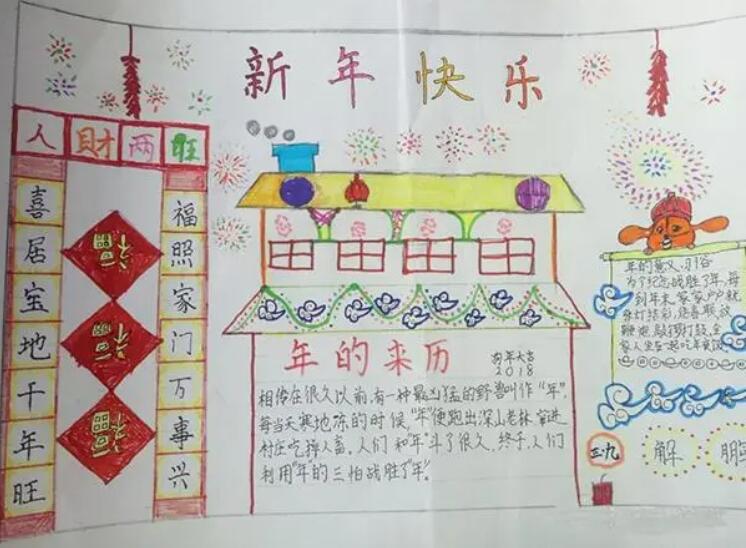 新年快乐
人财两旺
喜居宝地千年旺
福照家门万事兴
福
福
福
年的来历
狗年大吉
2018
相传在很久以前,有一种最凶猛的野兽叫作“年”,
每当天寒地冻的时候,“年”便跑出深山老林,窜进
村庄吃掉人畜,人们和“年”斗了很久,终于,人们
利用“年”的三怕战胜了“年”。
年的意义、习俗
为了纪念战胜了年,每
到年末,家家户户就
张灯结彩,
鞭炮,敲锣打鼓,全
家人坐在一起吃年夜饭
三九
解